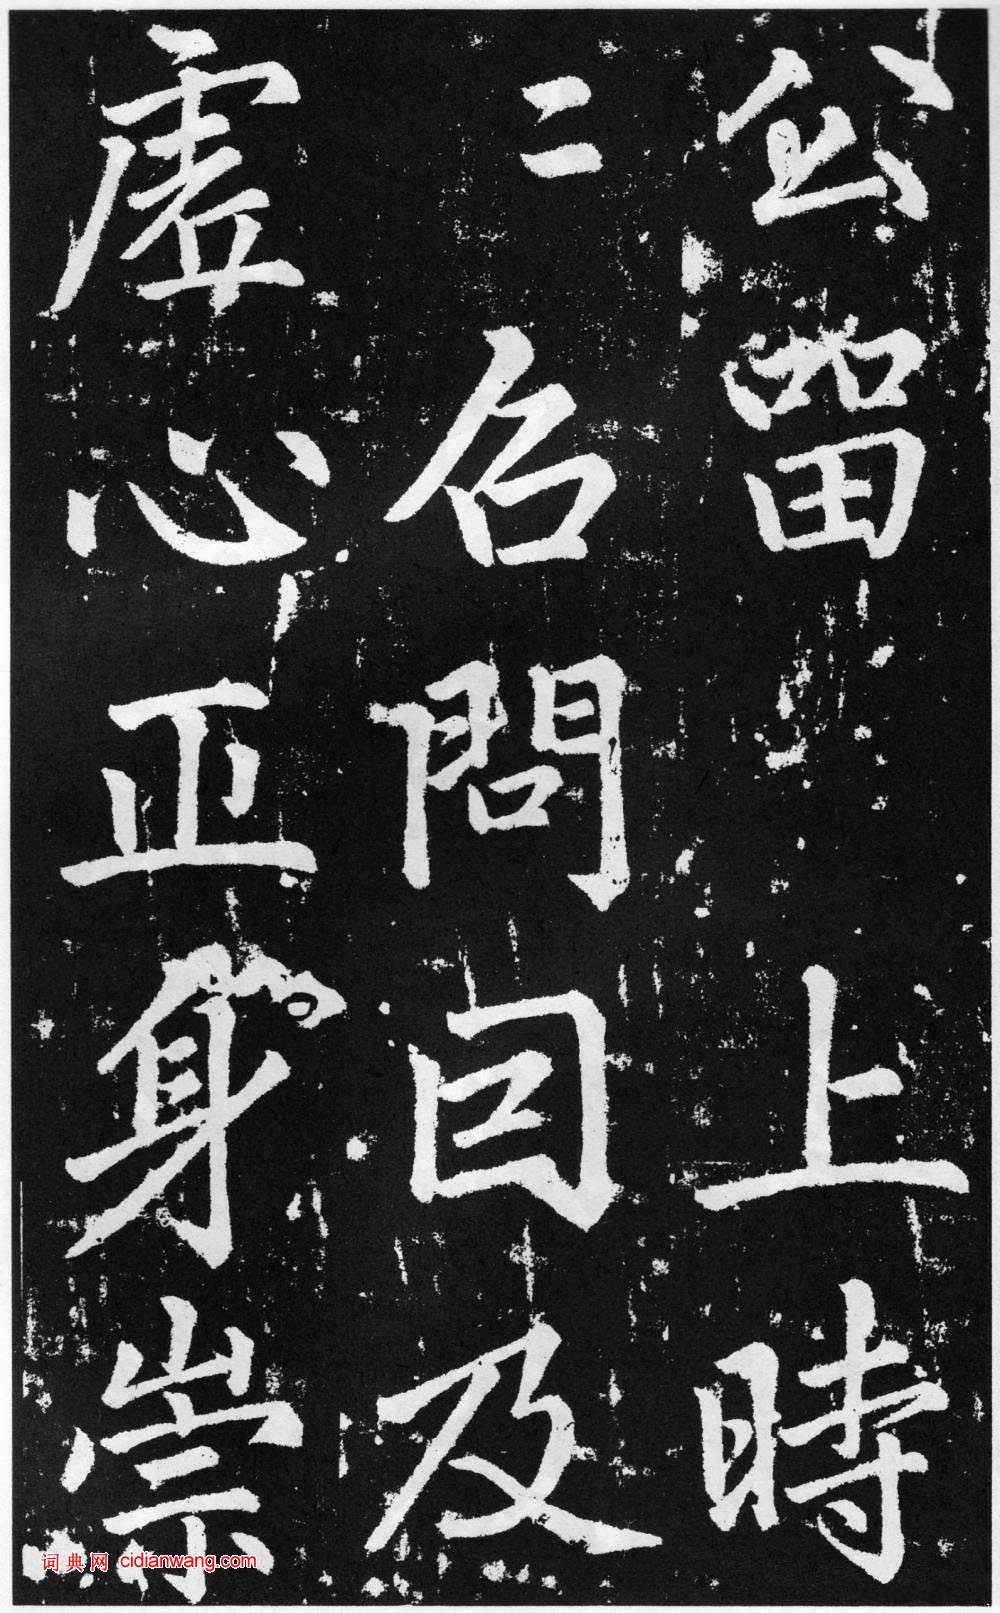 公留 上時
〻召問曰及
虛心正身崇
词典网 cidianwang.com